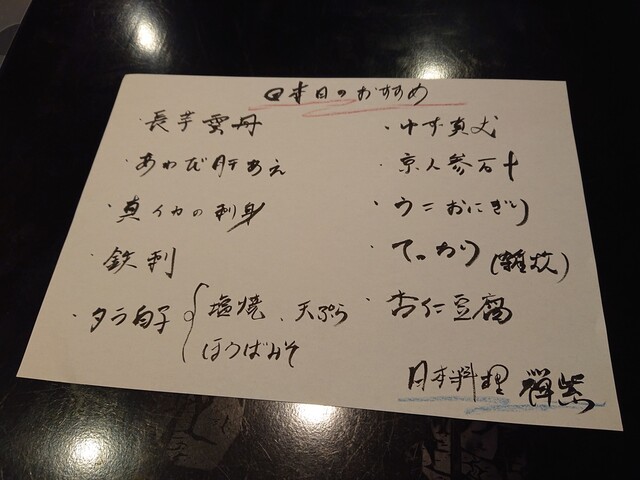 本日のおすすめ
・長芋雲丹
・あわび肝あえ
・真イカの刺身
・鉄刺
・タラ白子 塩焼、天ぷら
ほうばみそ
・ゆず真丈
・京人参万十
・ウニおにぎり
・てっかり(雑炊)
・杏仁豆腐
日本料理 禅紫